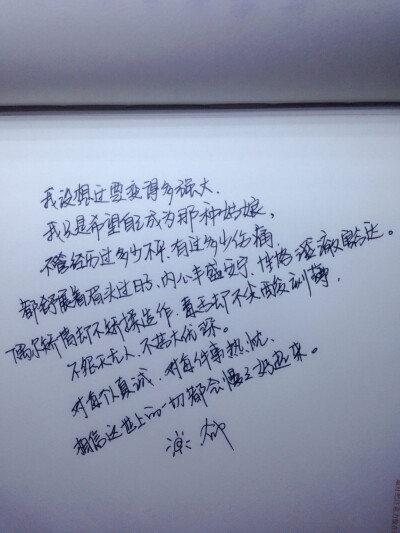 我没想过要变得多强大.
我只是希望自己成为那种姑娘,
不管经历过多少不平,有过多少伤痛,
都舒展着眉头过日子,内心丰盛安宁,性格澄澈豁达。
偶尔矫情却不矫揉造作,毒舌却不尖酸刻薄,
不怨天尤人,不苦大仇深。
对每个人真诚,对每件事热忱,
相信这世上的一切都会慢慢好起来。